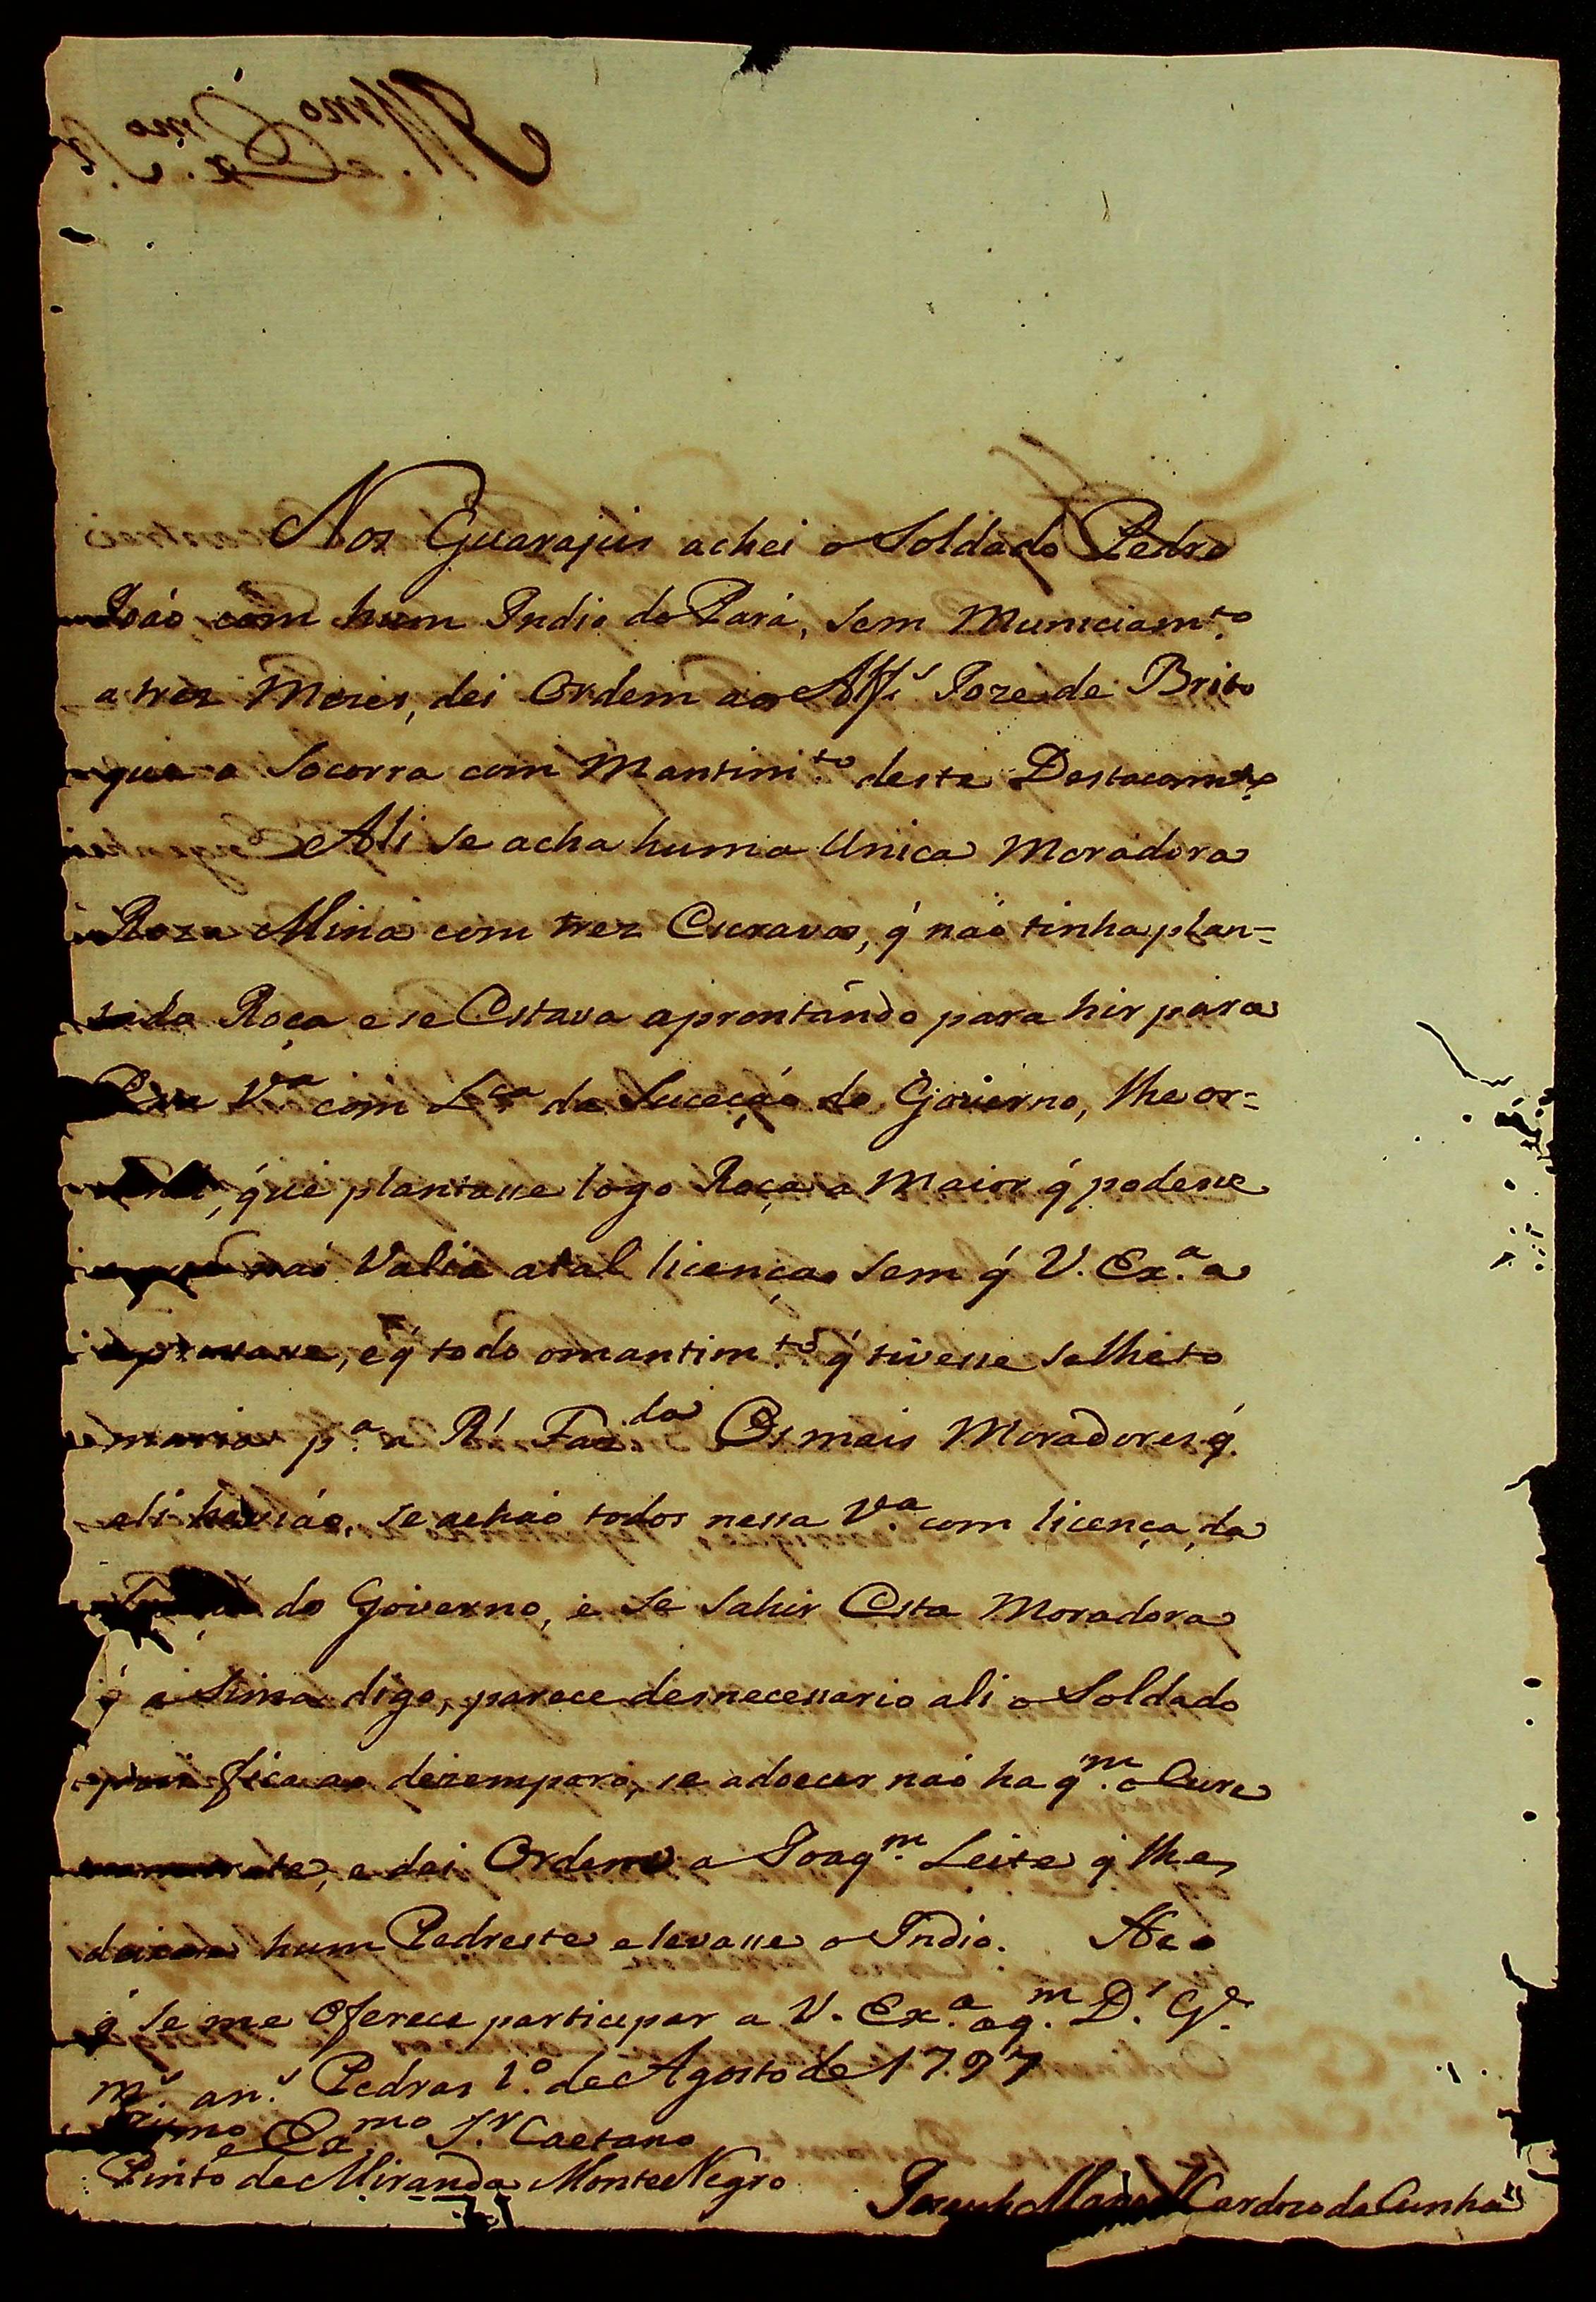 Nos Guarajús achei o Soldado Pedro
João com hum Indio do Pará, sem Municiam.to
a trez Mezes, dei Ordem ao Alf.s Joze de Brito
que o Socorra com Mantim.to deste Destacam.to
Ali se acha huma Unica Moradora
Roza Mina com trez Escravos, q' não tinha plan=
tado Roça e se Estava aprontando para hir para
Essa V.a com L.ca da Suceção do Governo, lhe or=
q́ue plantasse logo Roça a Maior q' podesse
não Valia a tal licença sem q' V. Ex.a a
, e q' todo o mantim.to q' tivesse se lhe to
maria p.a a R.l Faz.da Os mais Moradores q'
ali havião, se achão todos nessa V.a com licença da
do Governo, e se sahir Esta Moradora
q' a sima digo, parece desnecessario ali o Soldado
pois fica ao dezemparo, se adoecer não ha q.m o Cure
e dei Ordem a Joaq.m Leite q' lhe
deixase hum Pedreste e levasse o Indio. He o
q' se me Oferece participar a V. Ex.a a q.m D.s G.e
m.s an.s Pedras 1.o de Agosto de 1797
Illmo e Ex.mo Sr. Caetano
Pinto de Miranda Monte Negro
Jozeph Manoel Cardozo da Cunha
Ill.mo e Ex.mo Sr.